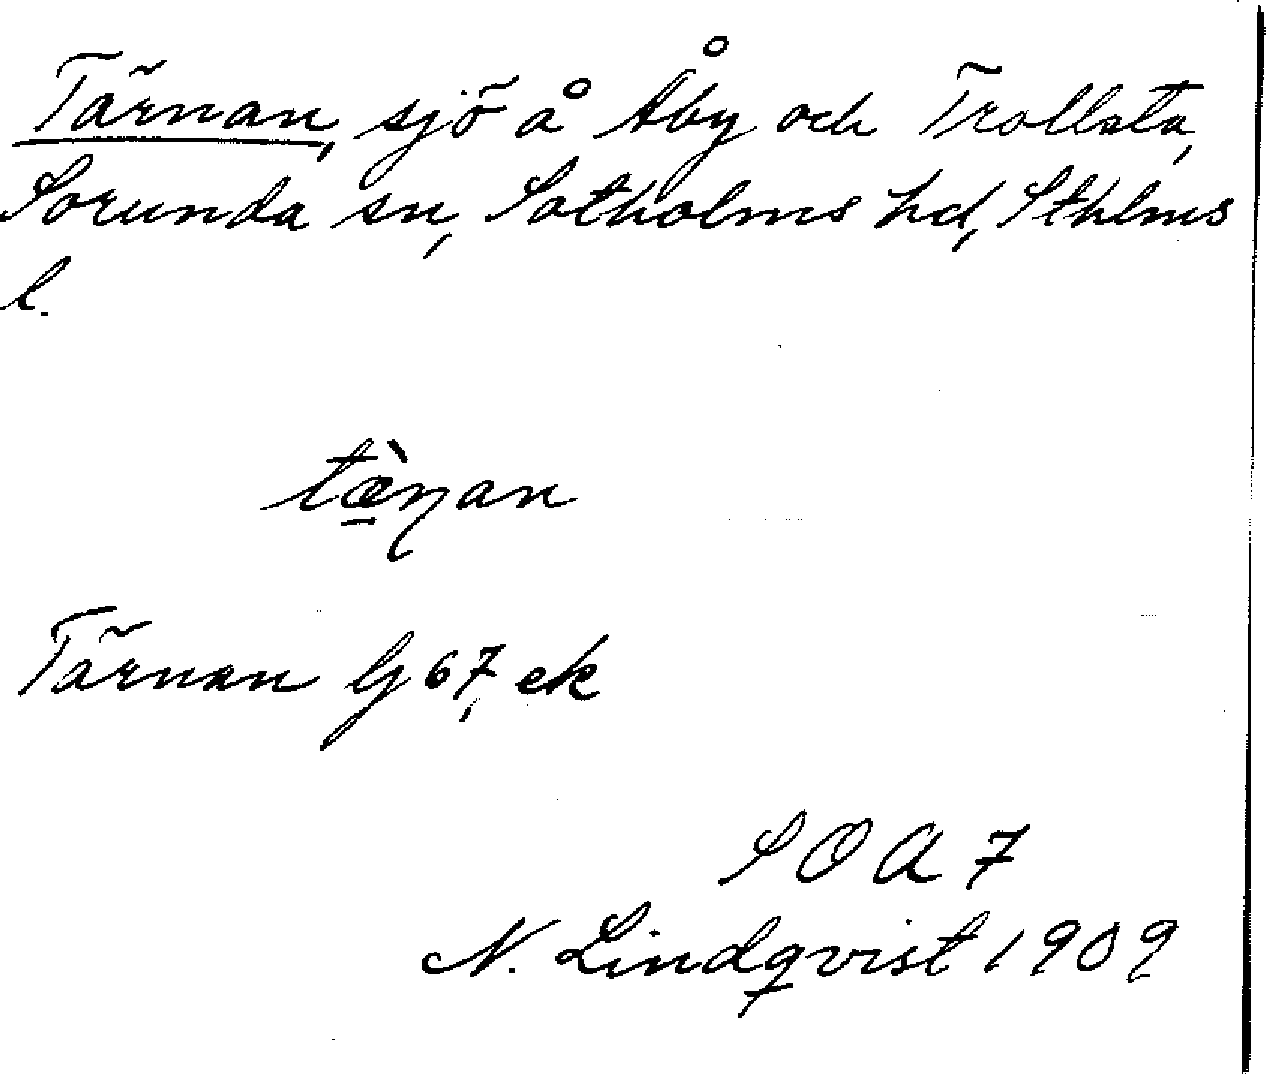 Tärnan, sjö å Åby och Trollsta,
Sorunda sn, Sotholms hd, Sthlms
l.
tæ̀ɳan
Tärnan G 67, ek
S O A 7
N. Lindqvist 1909